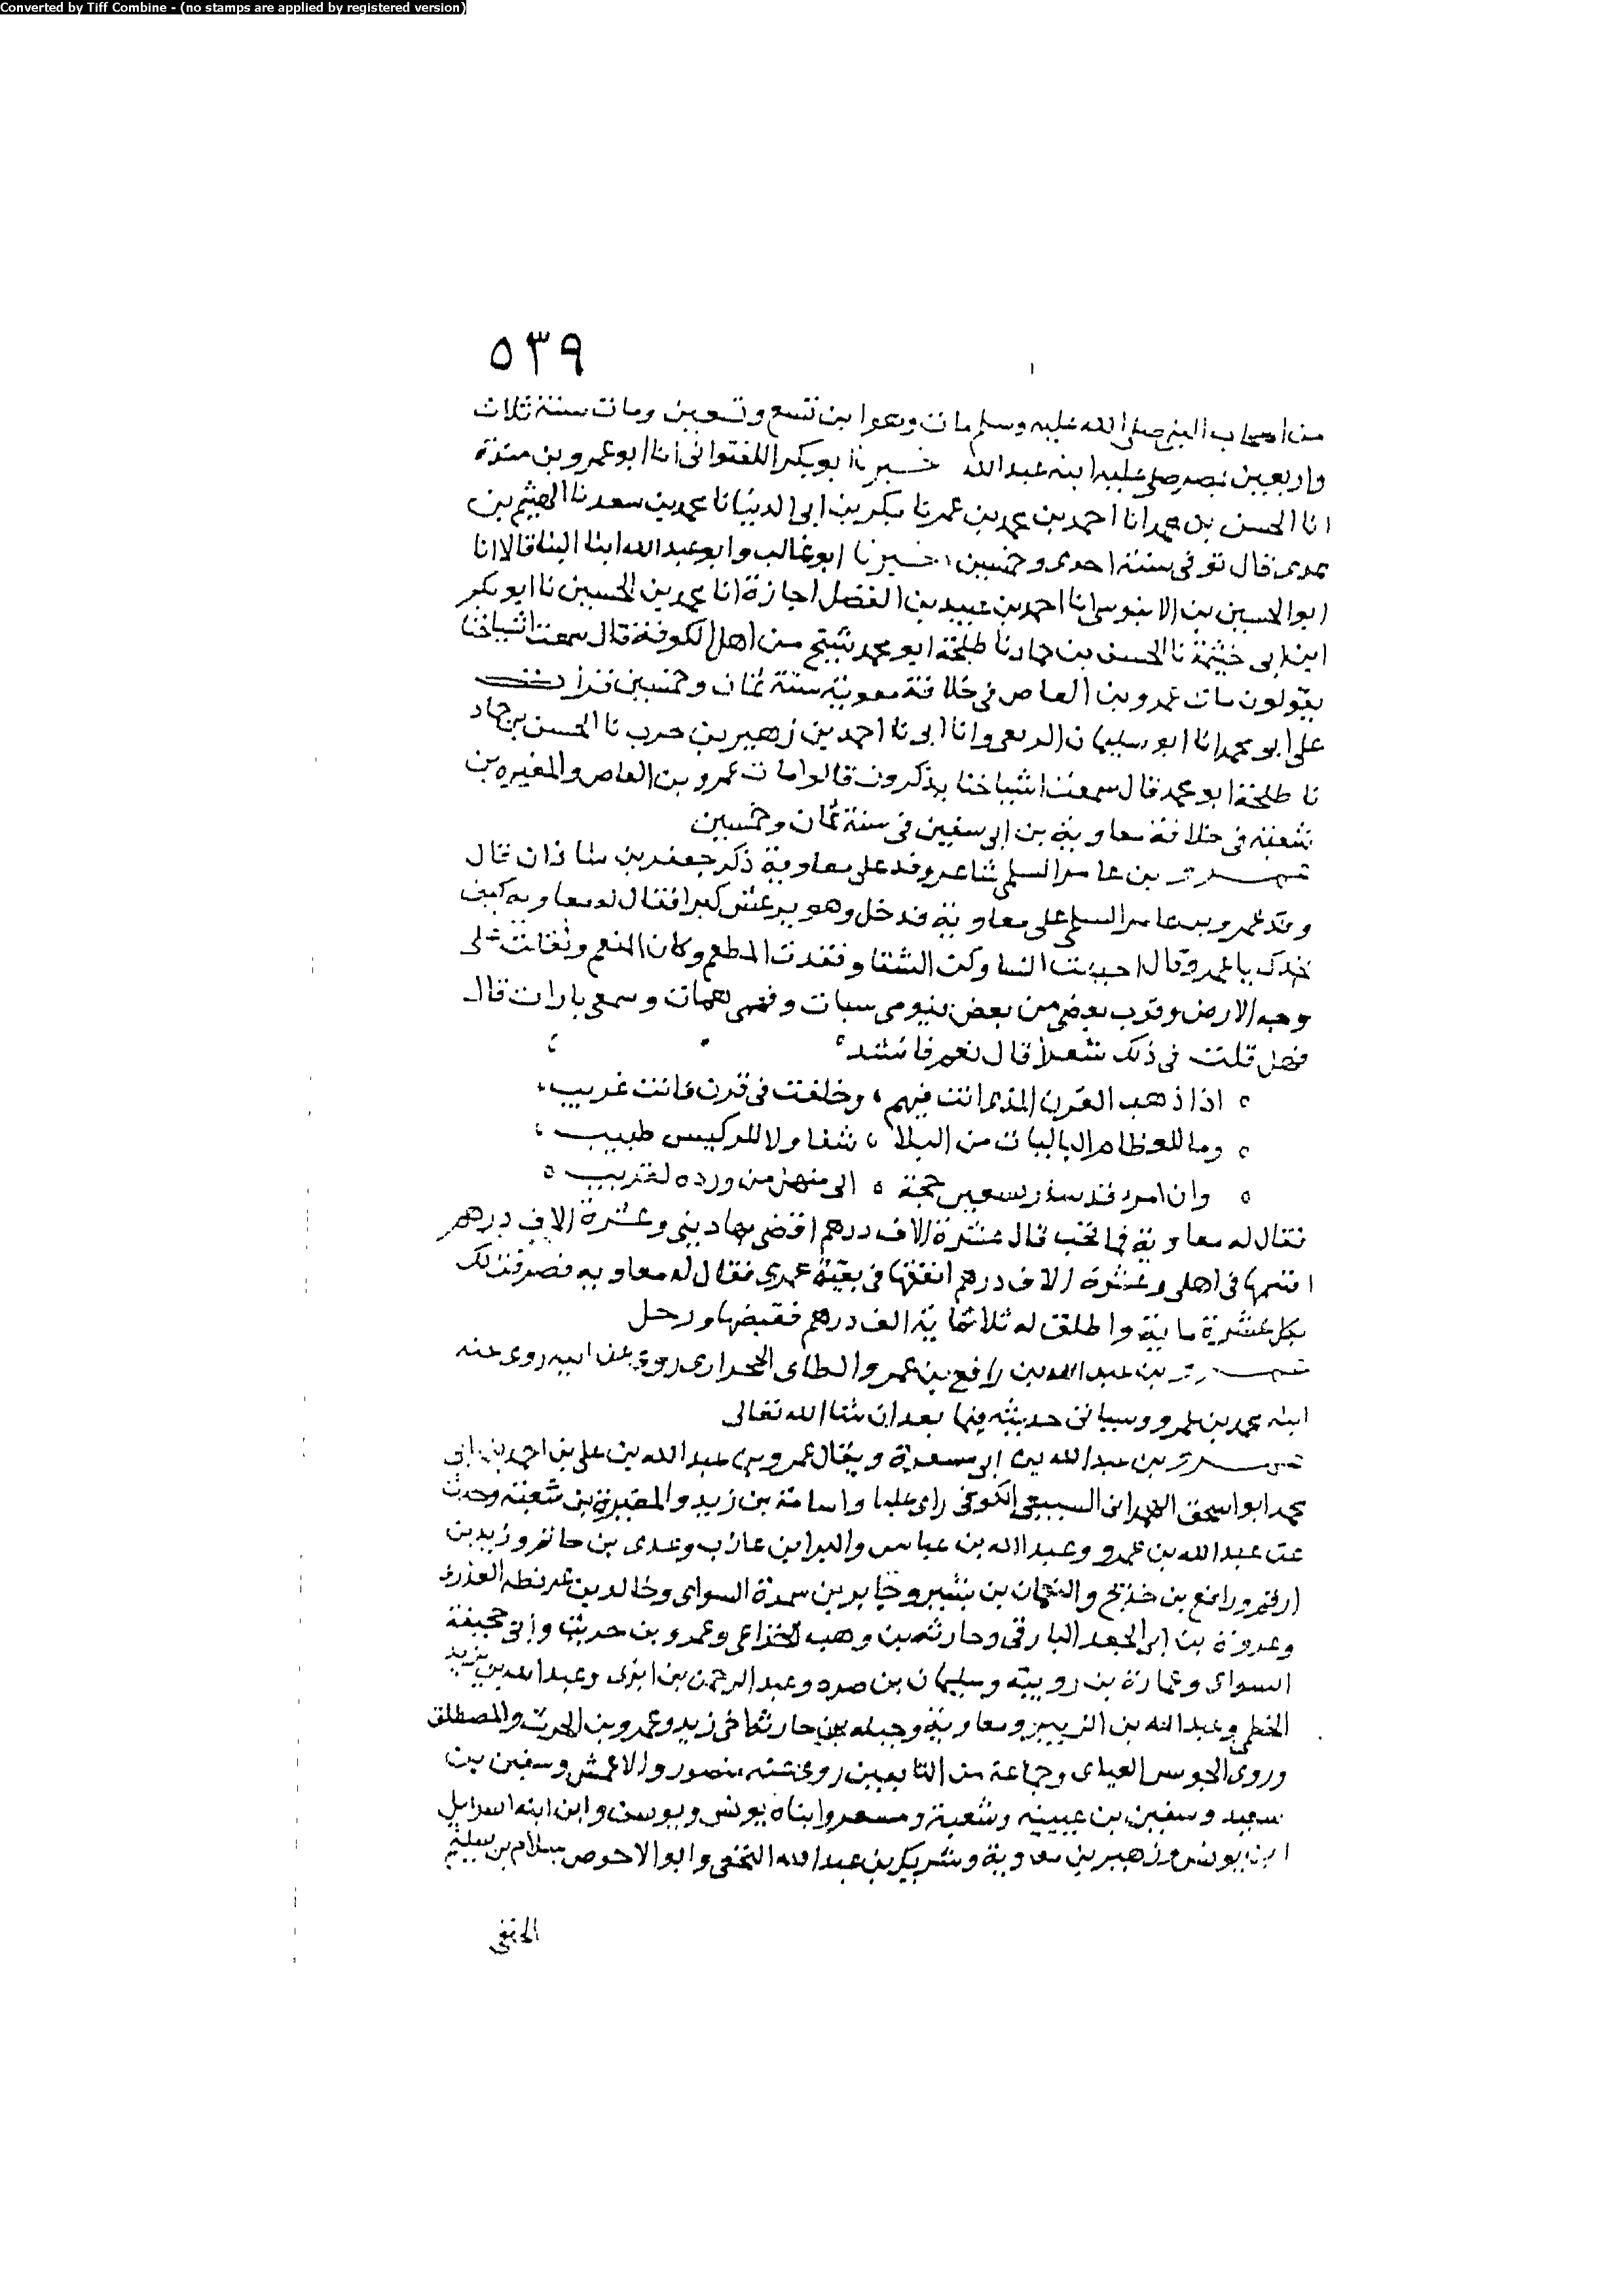 Converted by Tiff Combine - (no stamps are applied by registered version)
٥٣٩
من اصحاب النبي صلى الله عليه وسلم مات وهو ابن تسع وتسعين ومات سنة ثلاث
واربعين بمصر صلى عليه ابنه عبد الله خبرنا ابو بكر اللفتوانى انا ابو عمرو بن مندة
انا الحسن بن محمد انا احمد بن محمد بن عمر نا بكر بن ابى الدنيا نا محمد بن سعد نا الهيثم بن
عدى قال توفى سنة احدى وخمسين خبرنا ابو غالب وابو عبد الله ابنا البنا قالا انا
ابو الحسين بن الابنوسى انا احمد بن عبيد بن الفضل اجازة انا محمد بن الحسين نا ابو بكر
ابن ابى خيثمة نا الحسن بن حماد نا طلحة ابو محمد شيخ من اهل الكوفة قال سمعت اشياخنا
يقولون مات عمرو بن العاص فى خلافة معوية سنة ثمان وخمسين قرات
على ابو محمد انا ابو سليمان الربعى وانا ابى نا احمد بن زهير بن حرب نا الحسن بن حماد
نا طلحة ابو محمد قال سمعت اشياخنا يذكرون قالوا مات عمرو بن العاص والمغيره بن
شعبة فى خلافة معاوية بن ابى سفين فى سنة ثمان وخمسين
عمرو بن عامر السلمى شاعر وفد على معاوية ذكر جعفر بن شاذان قال
وفد عمرو بن عامر السلمى على معاوية فدخل وهو يرعش كبرا فقال له معاويه كيف
نجدك يا عمرو قال احببت النسا وكن الشفا وفقدت المطعم وكان المنعم وثقلت على
وجه الارض وقرب بعضى من بعض فنومى سبات وفهمى همات وسمعى بارات قال
فهل قلت فى ذلك شعرا قال نعم فانشد
اذا ذهب القرن الذى انت فيهم وخلفت فى قرن فانت غريب
وما للعظام الباليات من البلا شفا ولا للركبيس طبيب
وان امرء قد سار سبعين حجة الى منهل من ورده لقريب
فقال له معاوية فما تحب قال عشرة الاف درهم اقضى بها دينى وعشرة الاف درهم
اقسمها فى اهلى وعشرة الاف درهم انفقها فى بقية عمرى فقال له معاويه
بكل عشرة ماية واطلق له ثلاثماية الف درهم فقبضها ورحل
عمرو بن عبد الله بن رافع بن عمرو الطاى الحجراوى روى عن ابيه روى عنه
ابنه محمد بن عمرو وسياتى حديثه فيما بعد ان شا الله تعالى
عمرو بن عبد الله بن ابى شعيرة ويقال عمرو بن عبد الله بن على بن احمد بن ابى
محمد ابو اسحق الهمدانى السبيعى الكوفى راى عليا واسامة بن زيد والمغيرة بن شعبة وحدث
عن عبد الله بن عمرو وعبد الله بن عباس والبرا بن عازب وعدى بن حاتم وزيد بن
ارقم ورافع بن خديج والنعمان بن بشير وجابر بن سمرة السواى وخالد بن عرفطه العذرى
وعروة بن ابى الجعد البارقى وحارثه بن وهب الخزاعى وعمرو بن حريث وابى جحيفة
السواى وعمارة بن رويبة وسليمان بن صرد وعبد الرحمن بن ابزى وعبد الله بن يزيد
الخطمى وعبد الله بن الزبير ومعاوية وجبله بن حارثة اخى زيد وعمرو بن الحرث والمصطلق
وذوى الجوسن الضبابى وجماعة من التابعين روى عنه منصور والاعمش وسفين بن
سعيد وسفين بن عيينه وشعبة ومسعر وابناه يونس ويوسف وابن ابنه اسرايل
ابن يونس وزهير بن معاوية وشريك بن عبد الله النخعى وابو الاحوص سلام بن سليم
الحنفى